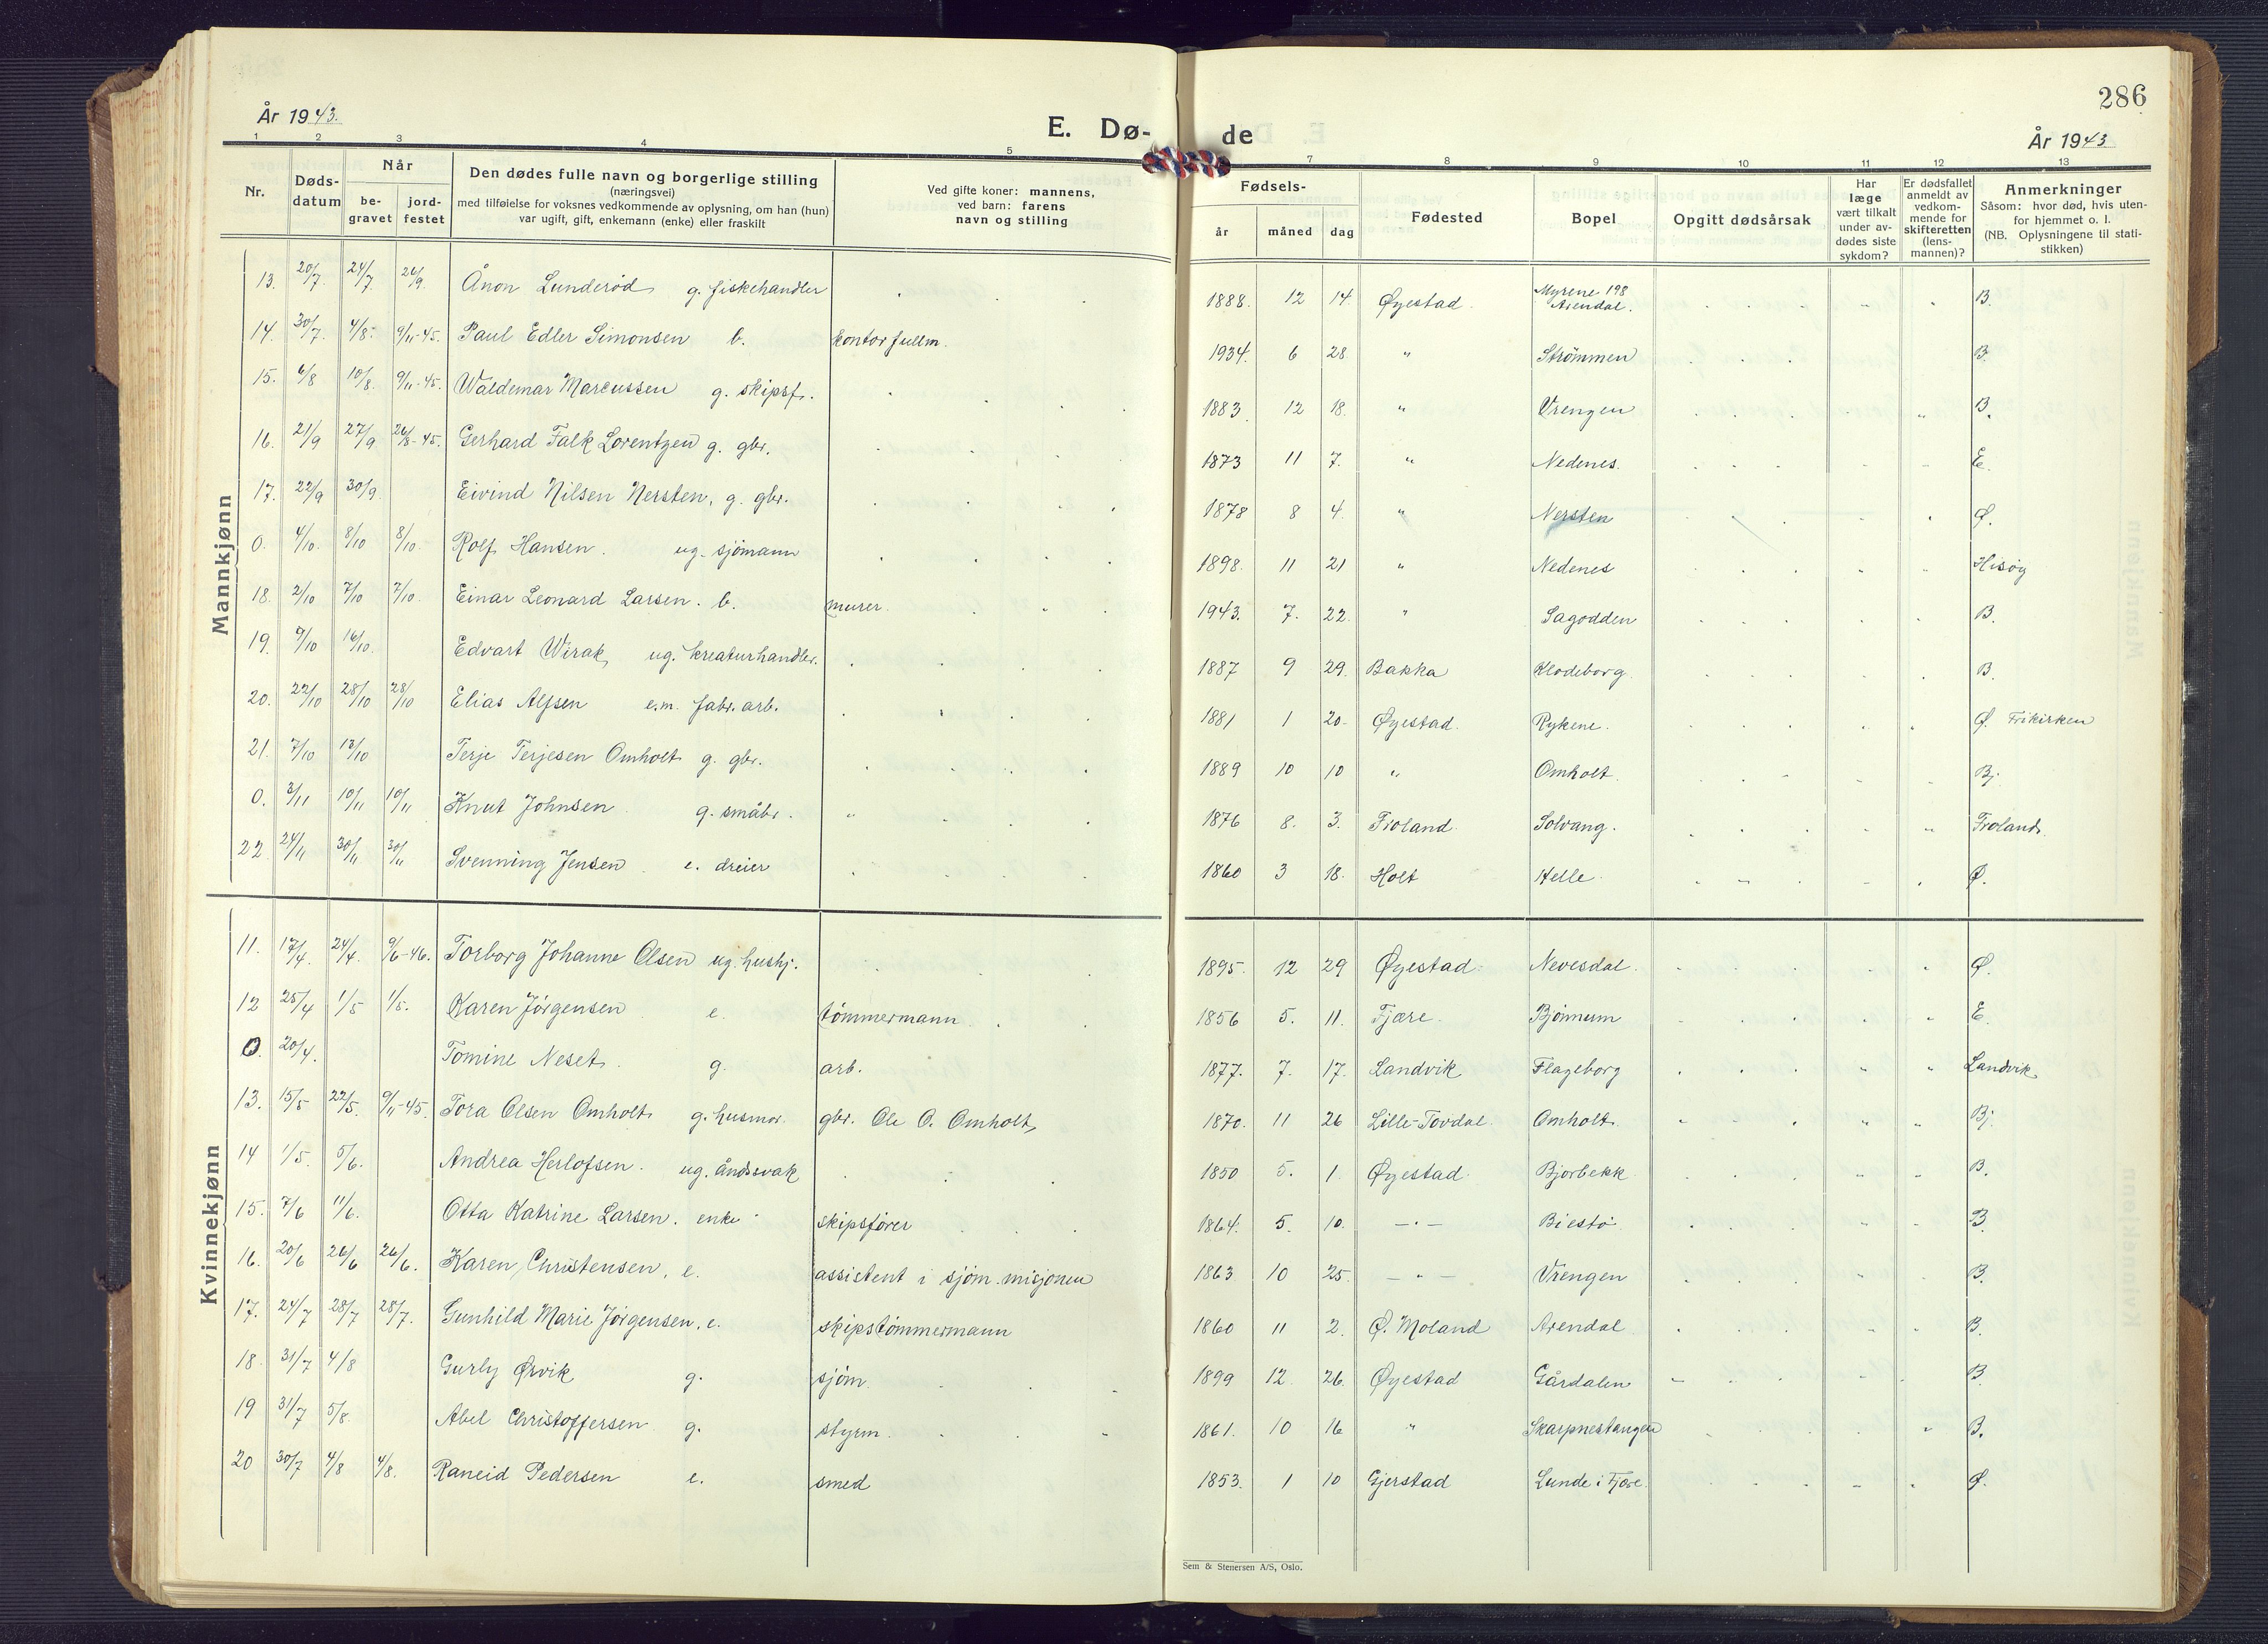 286
År 1943.
E. Dø-
de
År 1943
1 2 3 4 5 7 8 9 10 11 12 13
Nr.
Døds-
datum
Når
be-
gravet
jord-
festet
Den dødes fulle navn og borgerlige stilling
(næringsvei)
med tilføielse for voksnes vedkommende av oplysning, om han (hun)
var ugift, gift, enkemann (enke) eller fraskilt
Ved gifte koner: mannens,
ved barn: farens
navn og stilling
Fødsels-
år måned dag
Fødested
Bopel
Opgitt dødsårsak
Har
læge
vært tilkalt
under av-
dødes siste
sykdom?
Er dødsfallet
anmeldt av
vedkom-
mende for
skifteretten
(lens-
mannen)?
Anmerkninger
Såsom: hvor død, hvis uten-
for hjemmet o. l.
(NB. Oplysningene til stati-
stikken)
Mannkjønn
13. 20/7. 24/7. 26/9. Ånon Lunderød g. fiskehandler 1888. 12 14. Øyestad. Myrene 198 Arendal. B.
14. 30/7. 4/8. 9/11-45. Paul Edler Simonsen b. kontorfullm. 1934. 6 28 " Strømmen B.
15. 6/8 10/8. 9/11-45. Waldemar Marcussen g. skipsf. 1883. 12 18. " Vrengen B.
16. 21/9 27/9 26/8-45. Gerhard Falk Lorentzen g. gbr. 1873 11 7. " Nedenes. E.
17. 22/9 30/9. Eivind Nilsen Nersten, g. gbr. 1878 8 4. " Nersten Ø.
0. 4/10. 8/10 8/10. Rolf Hansen. ug. sjømann 1898. 11 21 " Nedenes Hisøy
18. 2/10 7/10 7/10. Einar Leonard Larsen. b. murer. 1943. 7. 22. " Sagodden B.
19. 9/10 16/10. Edvart Wirak, ug. kreaturhandler. 1887 9 29. Bakka Klodeborg. B.
20. 22/10 28/10 28/10 Elias Alfsen e.m. fabr. arb. 1881 1 20. Øyestad. Rykene. Ø. Frikirken
21. 7/10 13/10 Terje Terjesen Omholt g. gbr. 1889 10 10 " Omholt. Bj.
0. 3/11 10/11 10/11 Knut Johnsen g. småbr. 1876 8. 3. Froland. Solvang. Froland.
22. 24/11 30/11 30/11 Svenning Jensen e. dreier 1860 3 18. Holt Helle. Ø.
Kvinnekjønn
11. 17/4. 24/4. 9/6-46. Torborg Johanne Olsen ug. hushj. 1895. 12 29 Øyestad Nevesdal. Ø.
12 25/4 1/5 1/5. Karen Jörgensen e. tømmermann 1856 5. 11. Fjære. Bjønnum E.
0. 20/4. Tomine Neset. g. arb. 1877. 7. 17. Landvik Flageborg Landvik
13. 15/5 22/5. 9/11-45. Tora Olsen Omholt g. husmor. gbr. Ole O. Omholt, 1870. 11 26 Lille-Tovdal. Omholt. Bj.
14 1/5. 5/6. Andrea Herlofsen. ug. åndssvak 1850 5. 1. Øyestad Bjorbekk B.
15. 7/6 11/6. Otta Katrine Larsen. enke skipsfører 1864. 5. 10. -"- Biestø B.
16. 20/6 26/6 26/6. Karen Christensen, e. assistent i sjøm. misjonen 1863 10 25. -"- Vrengen B.
17. 24/7 28/7 28/7. Gunhild Marie Jørgensen, e. skipstømmermann 1860 11 2. Ø. Moland Arendal B.
18. 31/7 4/8 Gurly Ørvik g. sjøm. 1899 12. 26. Øyestad Gårdalen B.
19 31/7 5/8. Abel Christoffersen g. styrm. 1861. 10 16 " Skarpnestangen B.
20 30/7 4/8 4/8. Raneid Pedersen e. smed 1853. 1 10 Gjerstad Lunde i Fjære. Ø.
Sem & Stenersen A/S, Oslo.